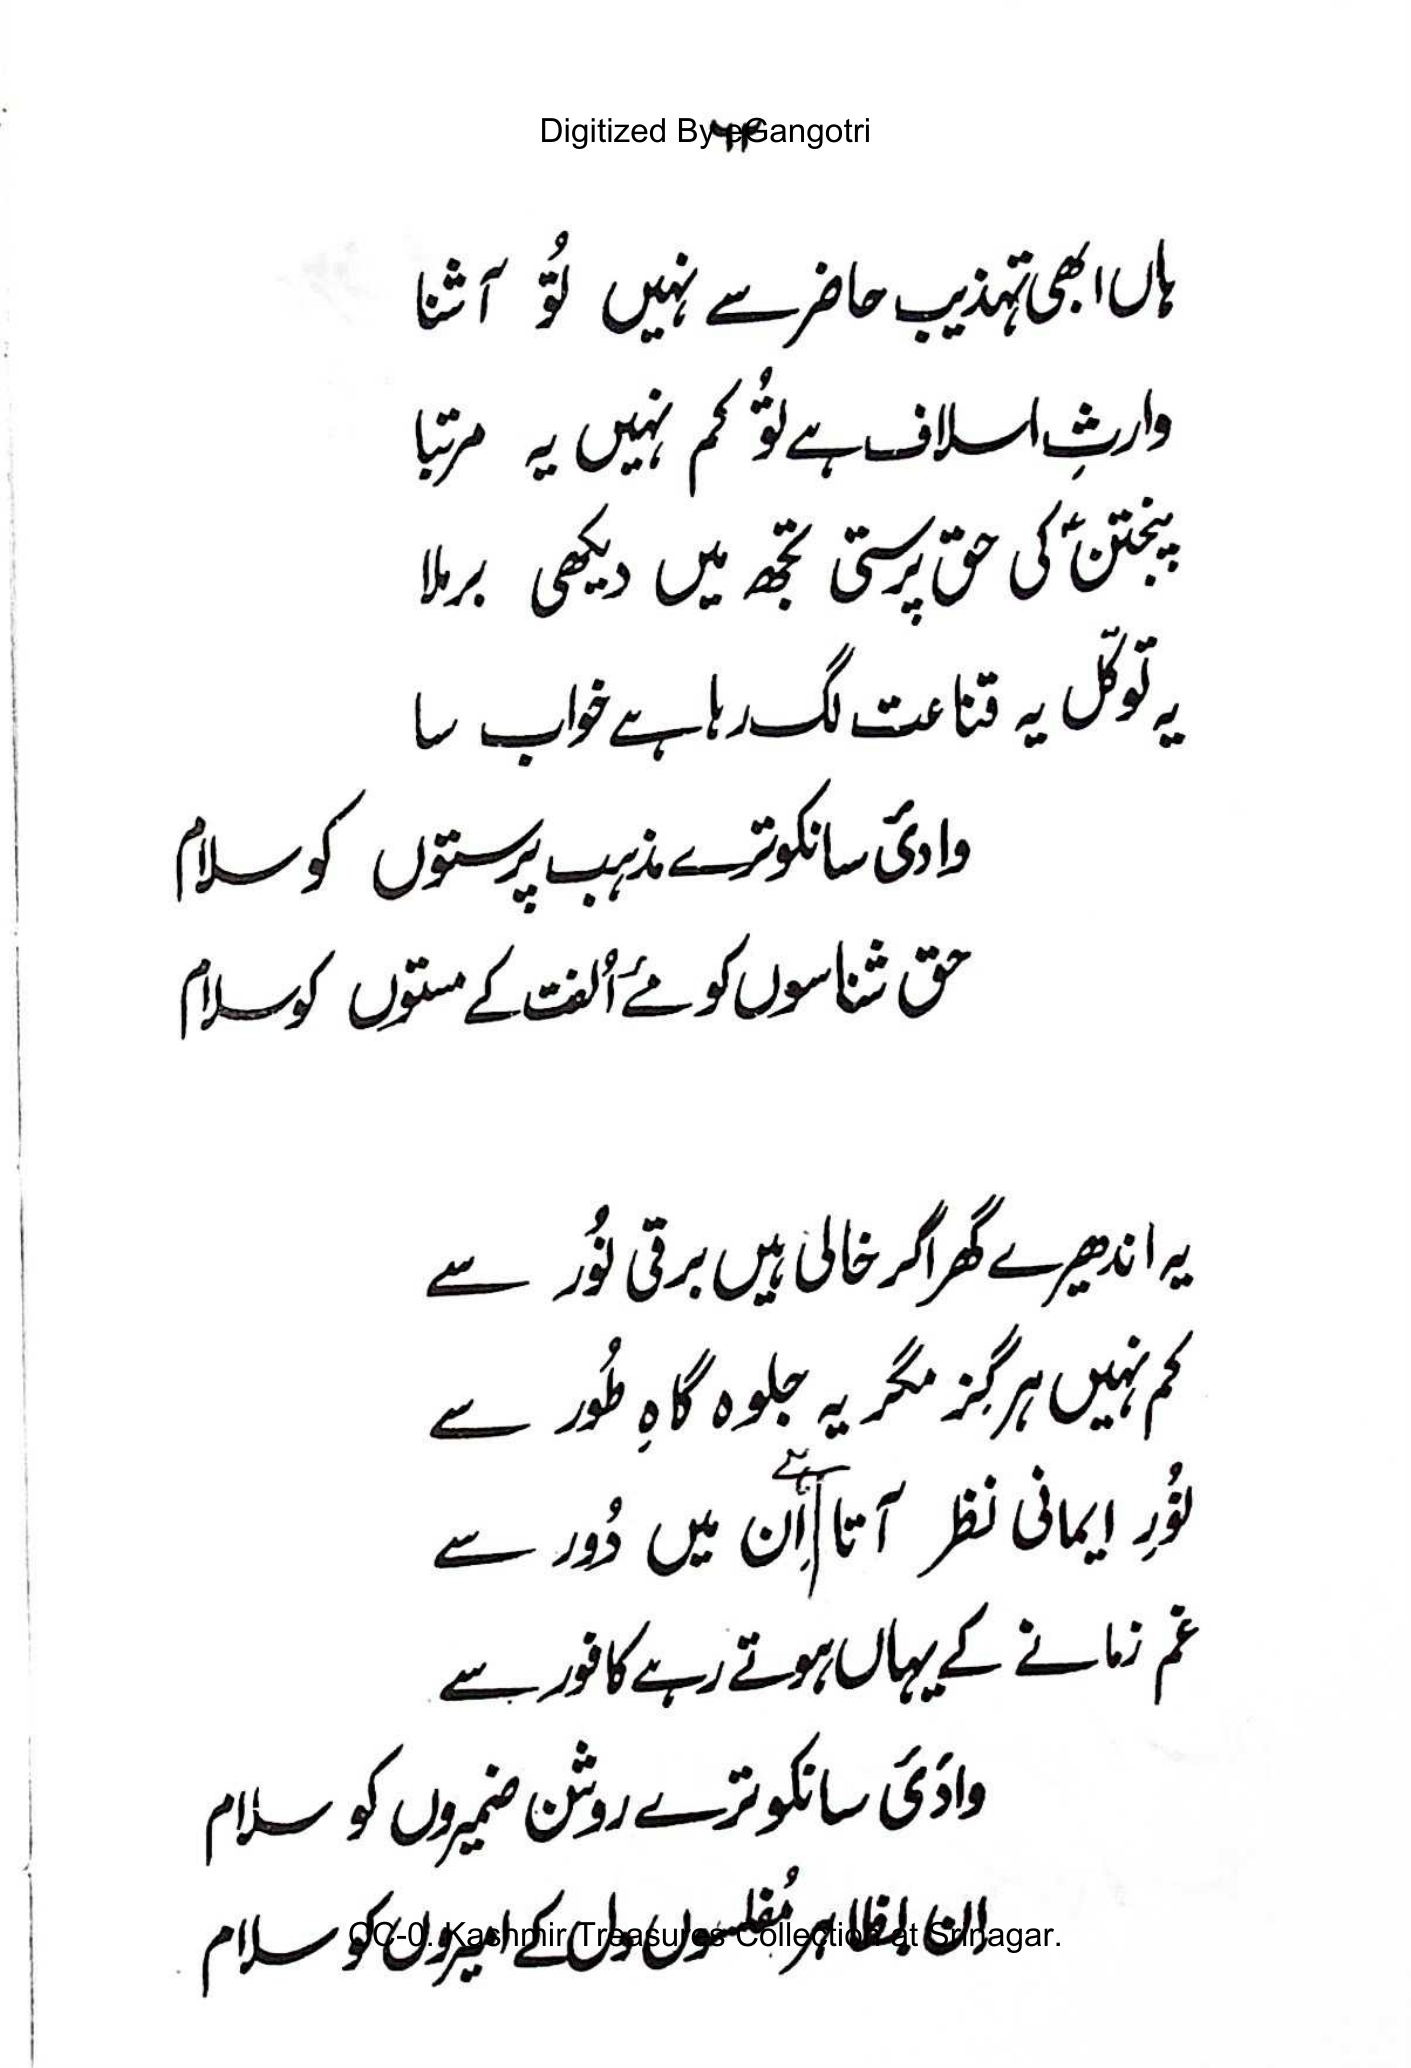 Digitized By eGangotri
۶۴
ہاں ابھی تہذیب حاضر سے نہیں تُو آشنا
وارثِ اسلاف ہے تُو کم نہیں یہ مرتبا
پنجتنؑ کی حق پرستی تجھ میں دیکھی برملا
یہ توکّل یہ قناعت لگ رہا ہے خواب سا
وادیٔ سانکو ترے مذہب پرستوں کو سلام
حق شناسوں کو مۓ اُلفت کے مستوں کو سلام
یہ اندھیرے گھر اگر خالی ہیں برقی نُور سے
کم نہیں ہرگِز مگر یہ جلوہ گاہِ طُور سے
نُورِ ایمانی نظر آتا ہے اِن میں دُور سے
غم زمانے کے یہاں ہوتے رہے کافور سے
وادَیٔ سانکو ترے روشن ضمیروں کو سلام
ان بظاہر مُفلسوں دل کے امیروں کو سلام
CC-0. Kashmir Treasures Collection at Srinagar.